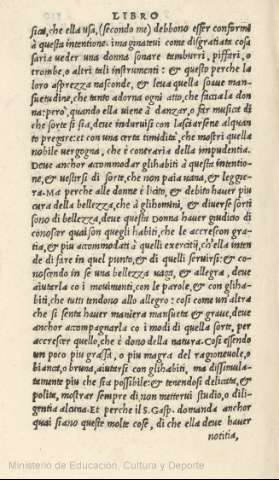 LIBRO
sica, che ella usa, (secondo me) debbono esser conformi
à questa intentione. imaginatevi come disgratiata cosa
saria veder una donna sonare tamburri, piffari, o
trombe, o altri tali instrumenti: & questo perche la
loro asprezza nasconde, & leva quella soave man-
suetudine, che tanto adorna ogni atto, che faccia la don
na: però, quando ella viene à danzar, o far musica di
che sorte si sia, deve indurvisi con lasciarsene alquan
to pregare: et con una certa timidità, che mostri quella
nobile vergogna, che è contraria della impudentia.
Deve anchor accommodar gli habiti à questa intentio-
ne, & vestirsi di sorte, che non paia vana, & legge-
ra. Ma perche alle donne è licito, & debito haver piu
cura della bellezza, che à gli homini, & diverse sorti
sono di bellezza, deve questa Donna haver giudicio di
conoscer quai son quegli habiti, che le accrescon gra-
tia, & piu accommodati à quelli exercitij, ch'ella inten
de di fare in quel punto, & di quelli servirsi: & co-
noscendo in se una bellezza vaga, & allegra, deve
aiutarla co i movimenti, con le parole, & con gli ha-
biti, che tutti tendano allo allegro: cosi come un'altra
che si senta haver maniera mansueta & grave, deve
anchor accompagnarla co i modi di quella sorte, per
accrescer quello, che è dono della natura. Cosi essendo
un poco piu grassa, o piu magra del ragionevole, o
bianca, o bruna, aiutarsi con gli habiti, ma dissimula-
tamente piu che sia possibile: & tenendosi delicata, &
polita, mostrar sempre di non mettervi studio, o dili-
gentia alcuna. Et perche il S. Gasp. domanda anchor
quai siano queste molte cose, di che ella deve haver
notitia,
Ministerio de Educación, Cultura y Deporte